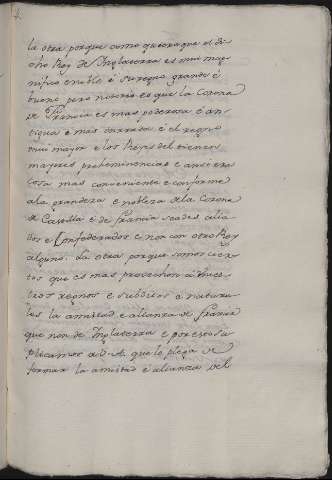 la otra porque como quiera que el di-
cho Rey de Inglaterra es mui mag-
nifico e noble é su reyno grande é
bueno pero notorio es que la Corona
de Francia es mas poderosa é an-
tigua é mas honrrada é el reyno
mui mayor e los Reyes del tienen
mayores preheminencias e ansi era
cosa mas conveniente e conforme
a la grandeza e nobleza de la Corona
de Castilla é de Francia seades alia-
dos e Confederados e non con otro Rey
alguno. La otra porque somos cier-
tos que es mas provechosa á vues-
tros reynos e subditos e natura-
les la amistad e alianza de Francia
que non de Inglaterra e por esto su-
plicamos a V. A. que le plega de
formar la amistad é alianza del